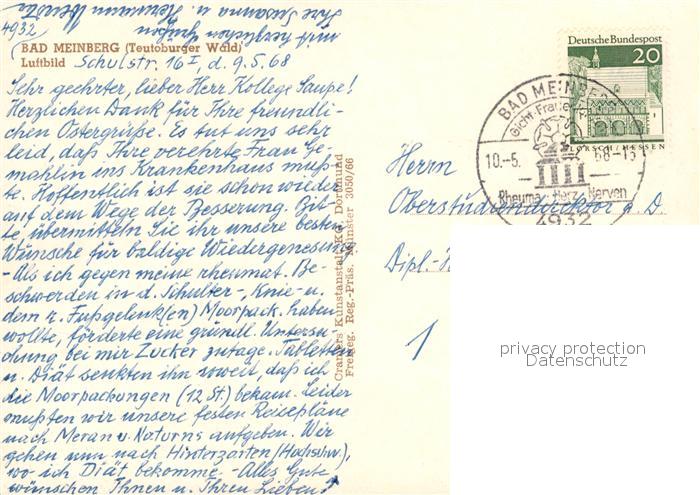 4932
BAD MEINBERG (Teutoburger Wald)
Luftbild Schulstr. 16 I, d. 9.5.68
Sehr geehrter, lieber Herr Kollege Saupe!
Herzlichen Dank für Ihre freundli-
chen Ostergrüße. Es tut uns sehr
leid, daß Ihre verehrte Frau Ge-
mahlin ins Krankenhaus muß-
te. Hoffentlich ist sie schon wieder
auf dem Wege der Besserung. Bit-
te übermitteln Sie ihr unsere besten
Wünsche für baldige Wiedergenesung.
- Als ich gegen meine rheumat. Be-
schwerden in d. Schulter-, Knie- u.
dem r. Fußgelenk(en) Moorpack. haben
wollte, förderte eine gründl. Untersu-
chung bei mir Zucker zutage. Tabletten
u. Diät senkten ihn soweit, daß ich
die Moorpackungen (12 St.) bekam. Leider
mußten wir unsere festen Reisepläne
nach Meran u. Naturns aufgeben. Wir
gehen nun nach Hinterzarten (Hochschw.),
wo ich Diät bekomme. - Alles Gute
wünschen Ihnen u. Ihren Lieben
mit herzlichen Grüßen
Ihre Susanna u. Hermann
Cramers Kunstanstalt KG, Dortmund
Freigeg. Reg.-Präs. Münster 3050/66
Deutsche Bundespost
20
LORSCH/HESSEN
BAD MEINBERG
Gicht-Frauen
10.-5. 68-15
Rheuma-Herz-Nerven
4932
Herrn
Oberstudiendirektor a. D.
Dipl.-
1
privacy protection
Datenschutz